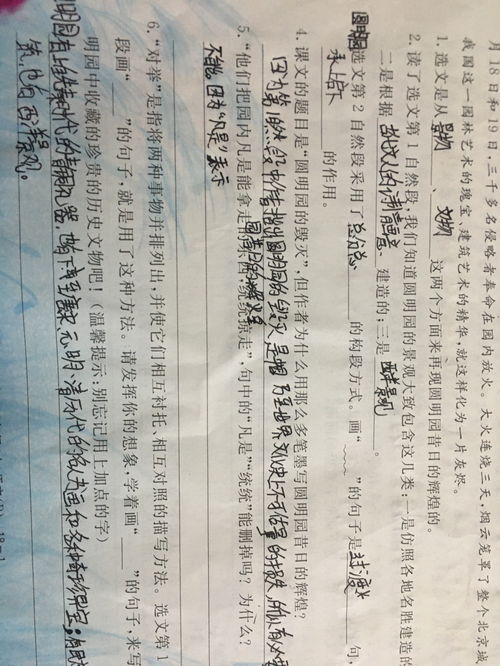 月18日和19日,三千多名侵略者奉命在园内放火。大火连烧三天,烟云笼罩了整个北京城
我国这一园林艺术的瑰宝、建筑艺术的精华,就这样化为一片灰烬。
1. 选文是从 景物 、 文物 这两个方面来再现圆明园昔日的辉煌的。
2. 读了选文第1自然段,我们知道圆明园的景观大致包含这几类:一是仿照各地名胜建造的
二是根据 古代诗人的诗情画意 建造的;三是 西洋景观 。
圆明园选文第2自然段采用了 总分总 的构段方式。画“ ”的句子是 过渡 句,
承上启下 的作用。
4. 课文的题目是“圆明园的毁灭”,但作者为什么用那么多笔墨写圆明园昔日的辉煌?
因为第1自然段中作者指出圆明园的毁灭是
5. “他们把园内凡是能拿走的东西,统统掠走”,句中的“凡是”“统统”能删掉吗?为什么?
不能,因为“凡是”表示
6. “对举”是指将两种事物并排列出,并使它们相互衬托、相互对照的描写方法。选文第1
段画“ ”的句子,就是用了这种方法。请发挥你的想象,学着画“ ”的句子,来写
明园中收藏的珍贵的历史文物吧!(温馨提示:别忘记用上加点的字)
圆明园有上自先秦时代的青铜礼器,下至唐宋元明清历代的名人书画和各种奇珍异宝;
筑,也有西洋景观。